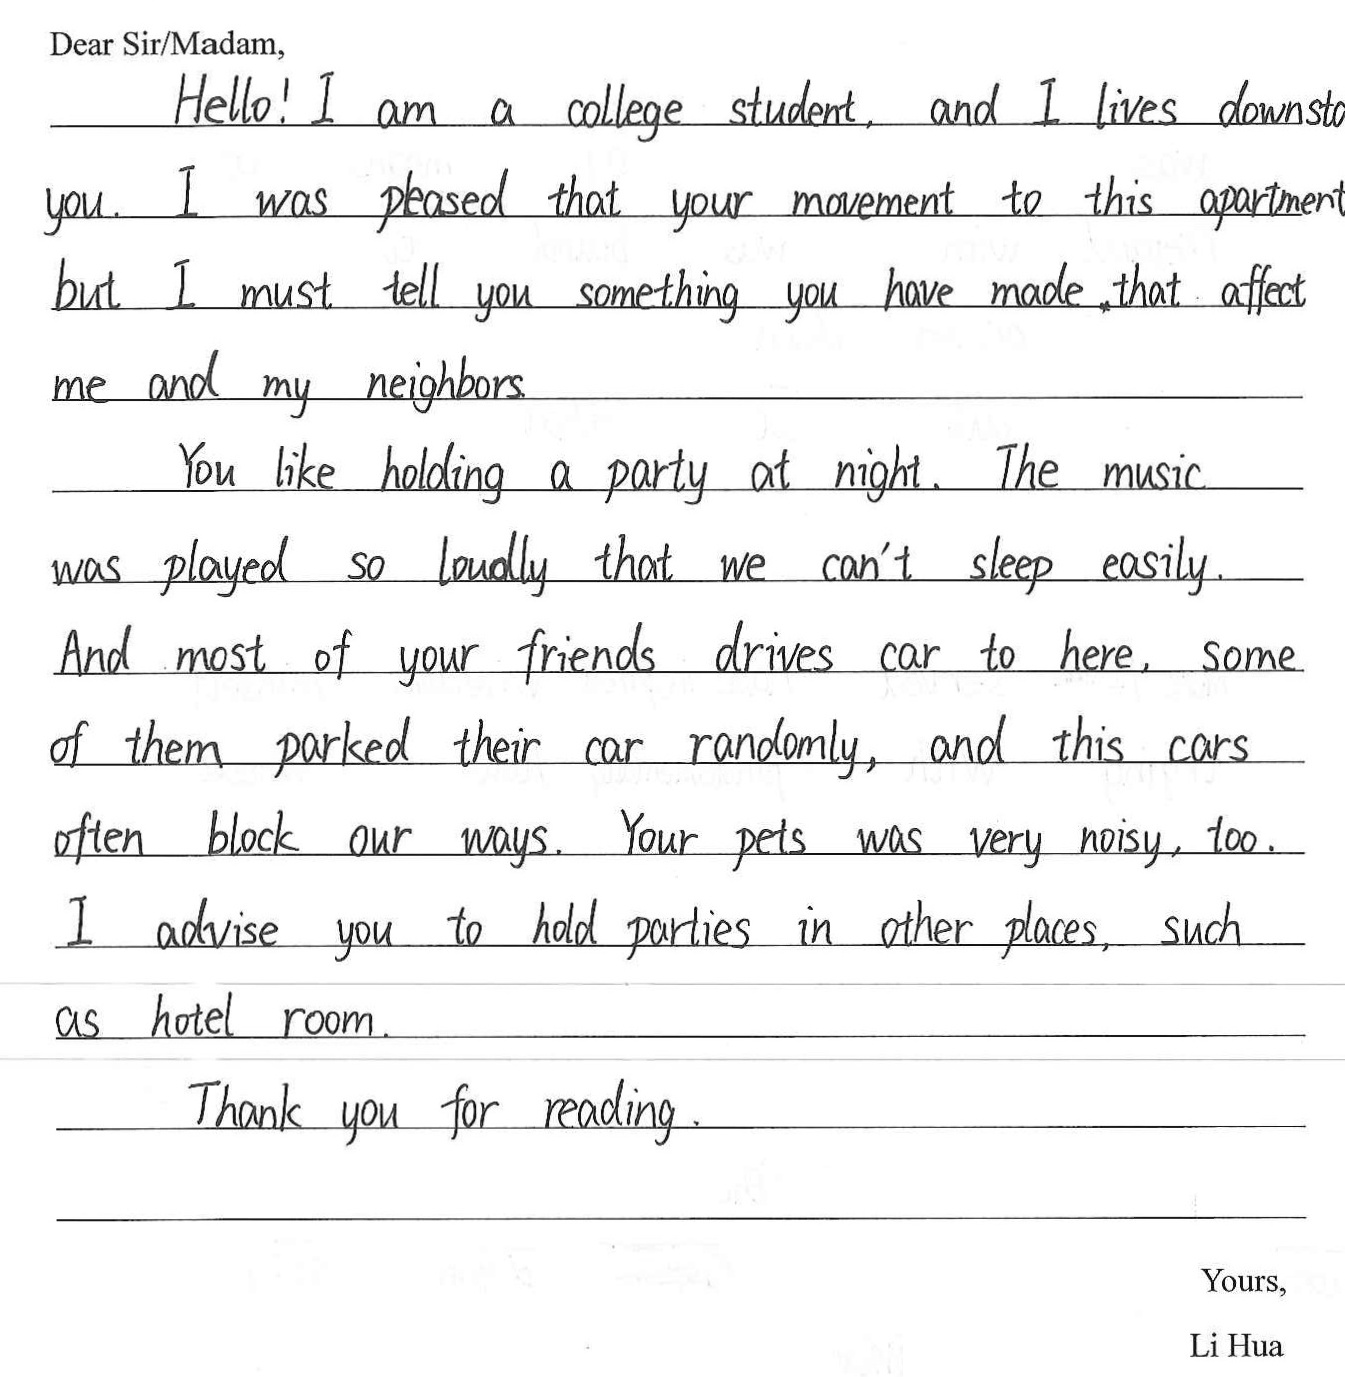 Dear Sir/Madam,
Hello! I am a college student, and I lives
you. I was pleased that your movement to this apartment
but I must tell you something you have made, that affect
me and my neighbors.
You like holding a party at night. The music
was played so loudly that we can't sleep easily.
And most of your friends drives car to here, some
of them parked their car randomly, and this cars
often block our ways. Your pets was very noisy, too.
I advise you to hold parties in other places, such
as hotel room.
Thank you for reading.
Yours,
Li Hua